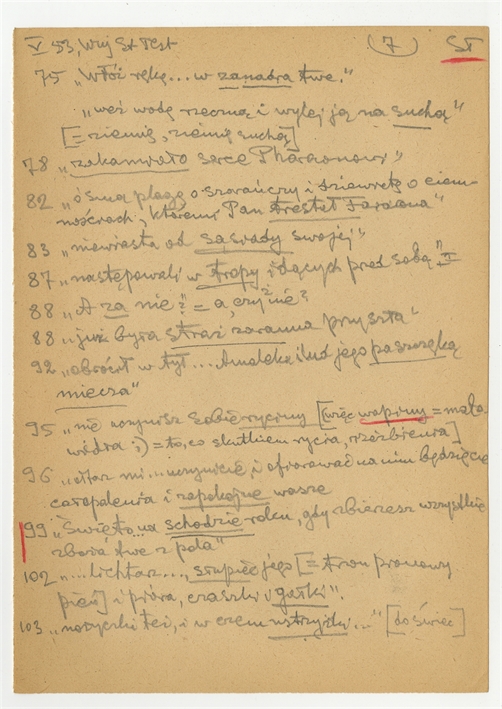 V 53, Wuj St Test (7) ST
75 „Włóż rękę... w zanadra twe."
„weź wodę rzeczną i wylej ją na suchą"
[= ziemię, ziemię suchą]
78 „zakamiało serce Pharaonowi"
82 „ósmą plagę o szarańczy i dziewiątą o ciem-
nościach, któremi Pan trestał Faraona"
83 „niewiasta od sąsiady swojej"
87 „następowali w tropy idących przed sobą"
88 „A za nie?" = a, czyż nie?
88 „już była straż zaranna przyszła"
92 „obrócił w tył... Amaleka i lud jego paszczęką
miecza"
95 „nie uczynisz sobie ryciny [więc wapiny = mała
widra ;) = to, co skutkiem rycia, rzeźbienia]
96 „ołtarz mi... uczynicie, i ofiarować na nim będziecie
całopalenia i zapokojne wasze
99 „Święto... na schodzie roku, gdy zbierzesz wszystkie
zboża twe z pola"
102 „... lichtarz..., słupiec jego [= trzon pionowy
pień] i pióra, czaszki i gałki".
103 „nożyczki też, i w czem ustrzyżki..." [do świec]